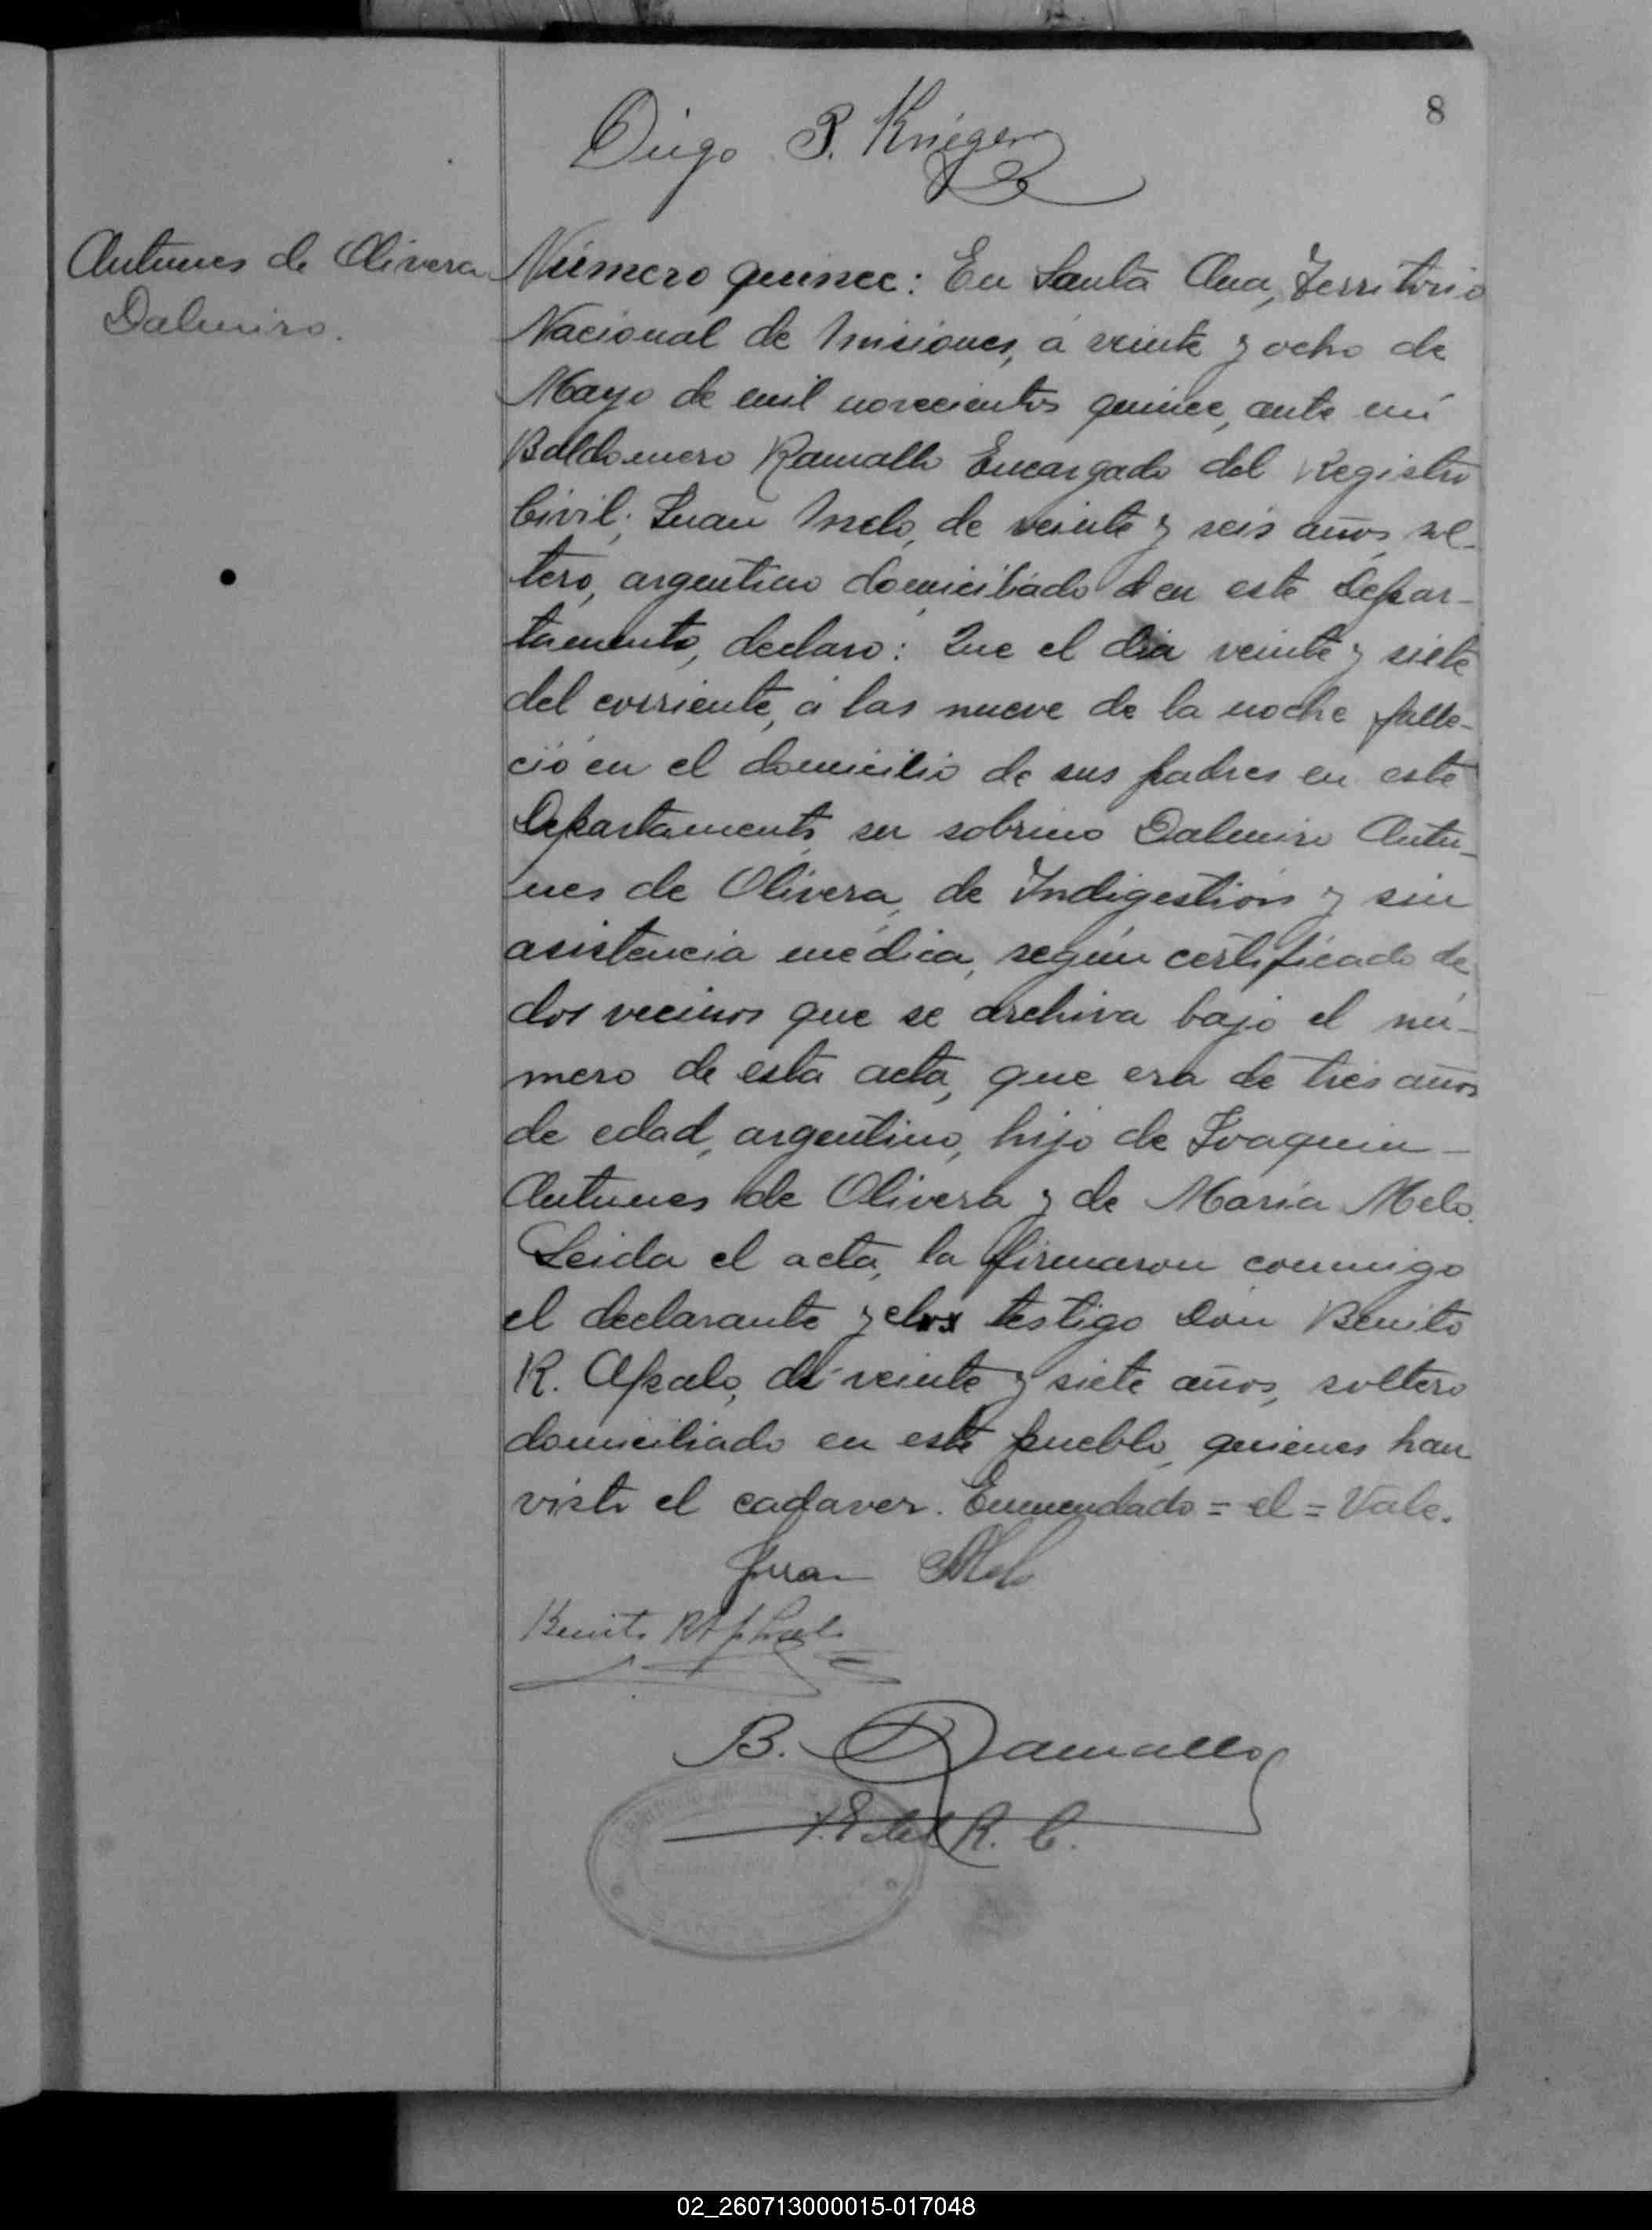 8
Diego P. Krieger
Antunes de Olivera
Dalmiro.
Número quince: En Santa Ana, Territorio
Nacional de Misiones, á veinte y ocho de
Mayo de mil novecientos quince, ante mí
Baldomero Ramallo Encargado del Registro
Civil; Juan Melo, de veinte y seis años, sol-
tero, argentino domiciliado en este Depar-
tamento, declaro: Que el dia veinte y siete
del corriente, á las nueve de la noche falle-
ció en el domicilio de sus padres en este
Departamento, su sobrino Dalmiro Antu-
nes de Olivera, de Indigestion y sin
asistencia médica, según certificado de
dos vecinos que se archiva bajo el nú-
mero de esta acta, que era de tres años
de edad, argentino, hijo de Joaquin
Antunes de Olivera y de María Melo.
Leida el acta, la firmaron conmigo
el declarante y el testigo Don Benito
R. Apalo, de veinte y siete años, soltero
domiciliado en este pueblo, quienes han
visto el cadaver. Enmendado = el = Vale.
Juan Melo
Benito R
B. Ramallo
E. del R. C.
02_260713000015-017048